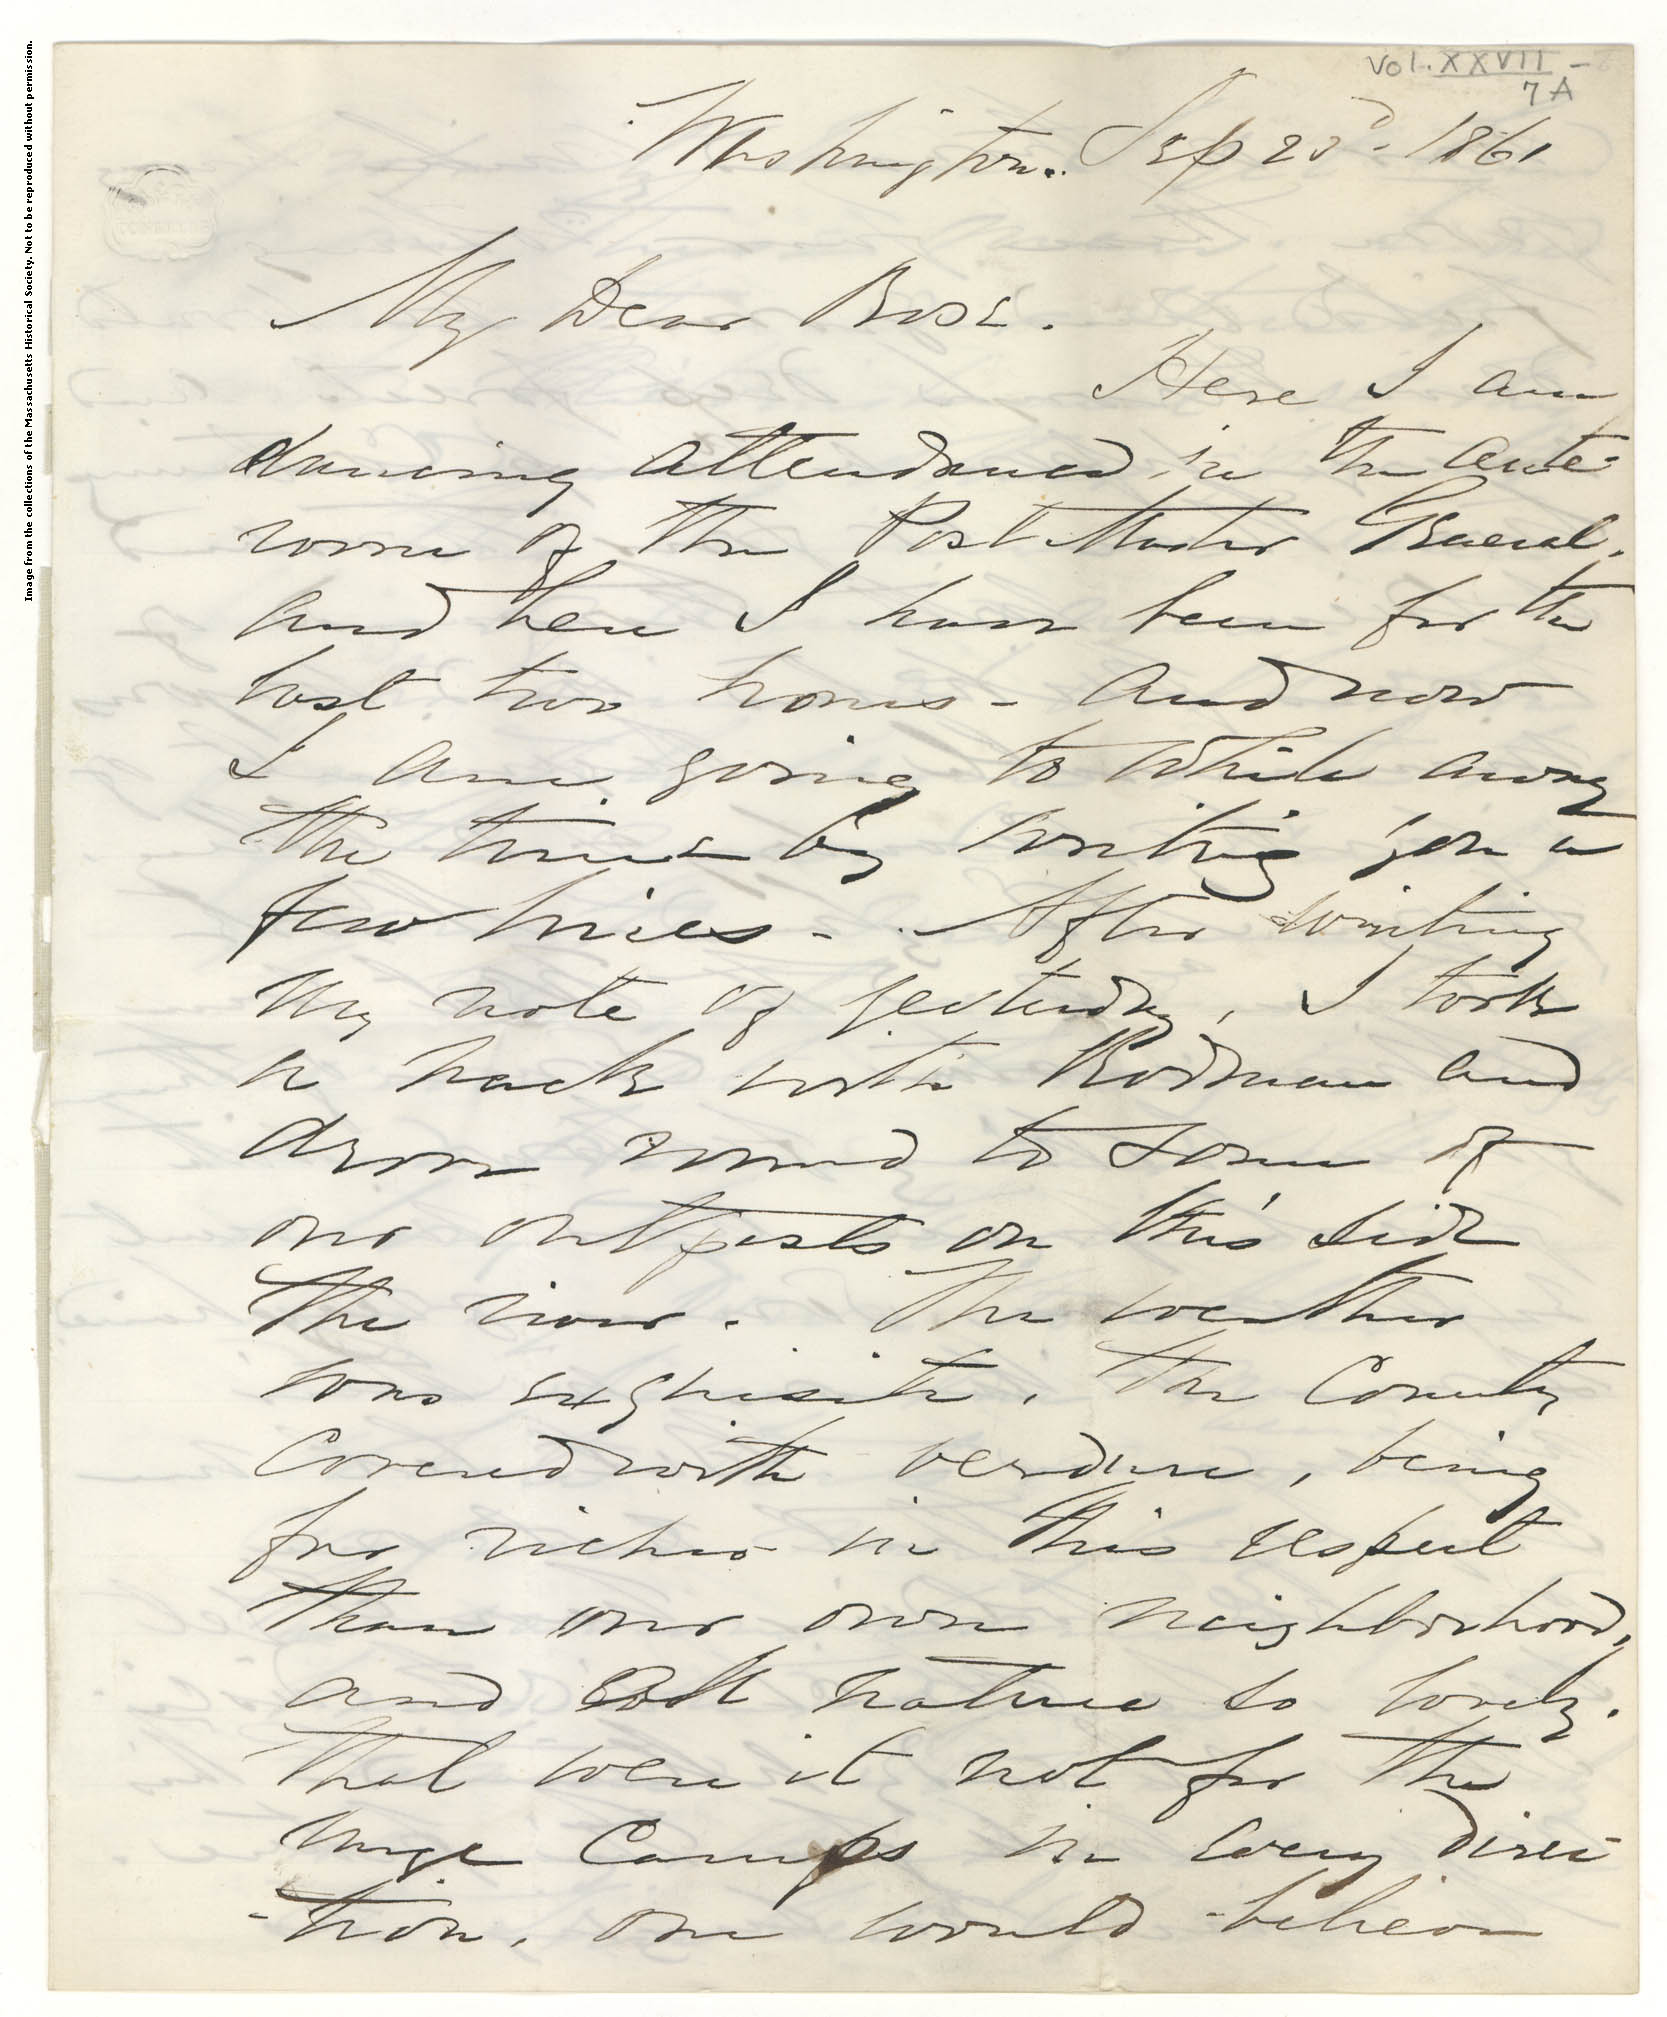 Image from the collections of the Massachusetts Historical Society. Not to be reproduced without permission.
Vol. XXVII -
7A
Washington. Sep 23d. 1861
My Dear Rose.
Here I am
dancing attendance in the ante-
room of the Post Master General,
and here I have been for the
last two hours - and now
I am going to while away
the time by writing you a
few lines - . After writing
my note of yesterday, I took
a hack with Rodman and
drove round to some of
our outposts on this side
the river. The weather
was exquisite, the County
Covered with verdure, being
far richer in this respect
than our own neighborhood,
and all nature so lovely.
that were it not for the
huge Camps in every direc-
-tion, one would believe